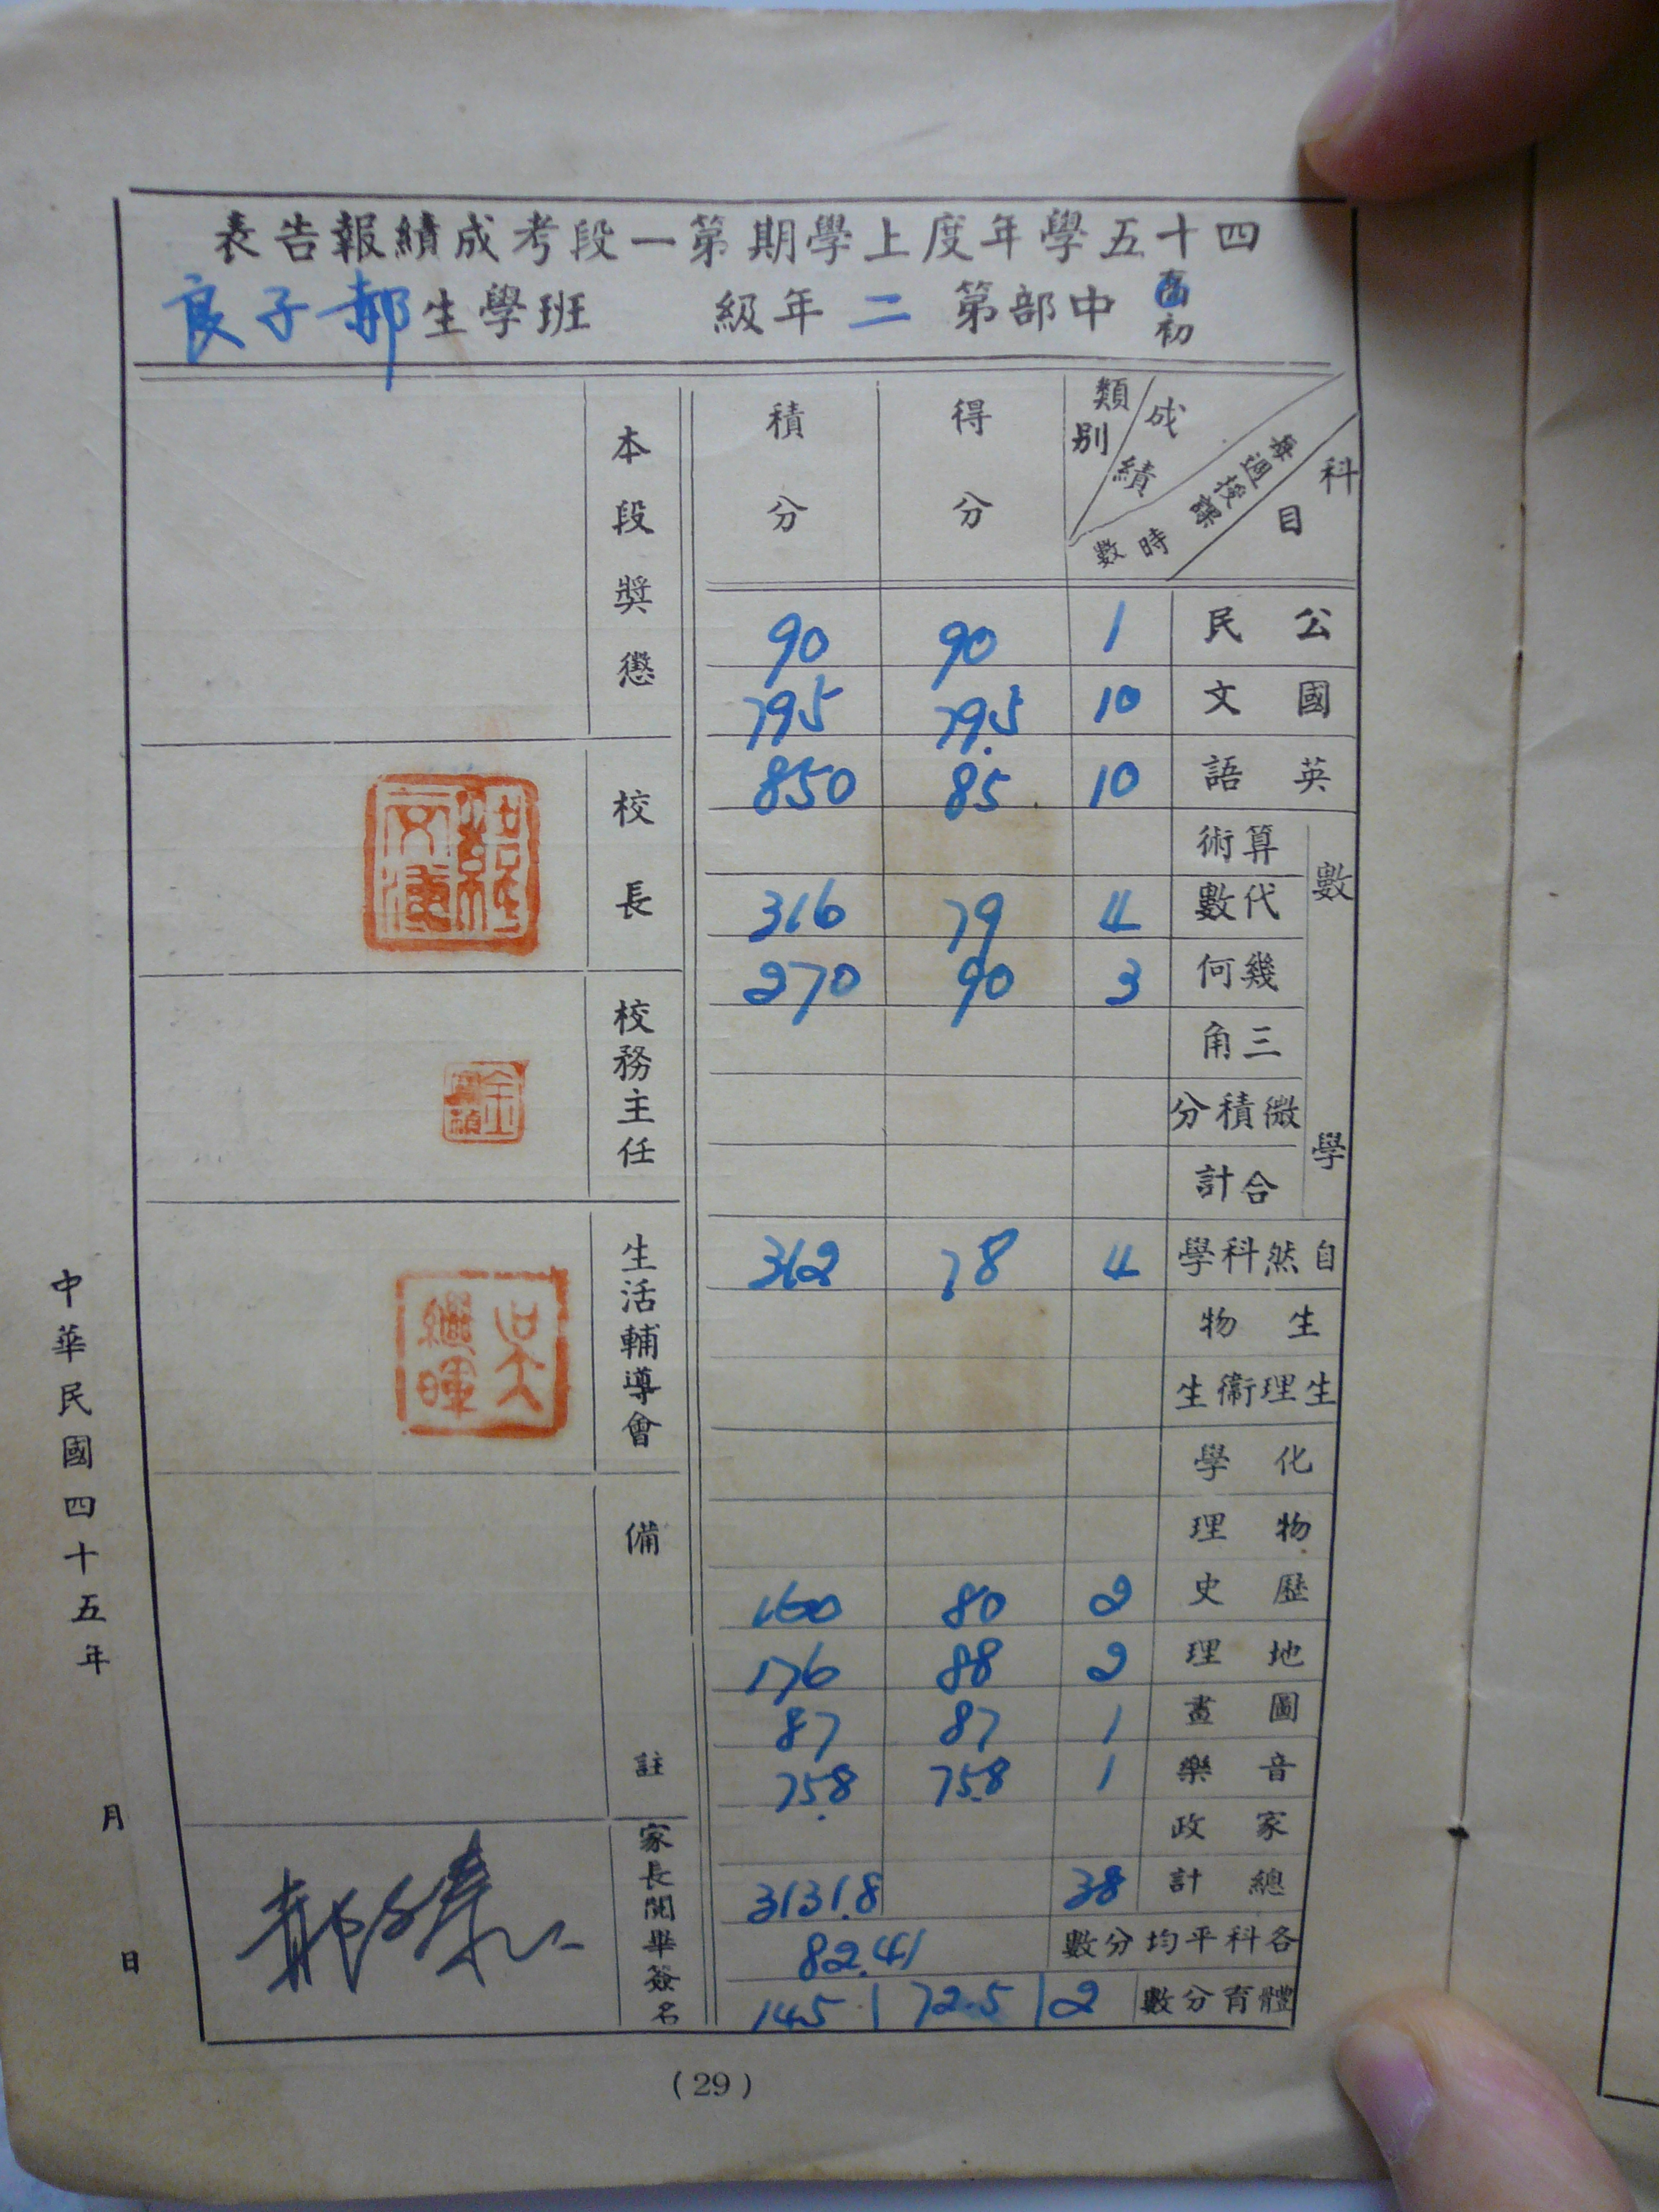 四十五學年度上學期第一段考成績報告表
高初中部第二年級 班學生郝子良
科目 每週授課時數 成績 類別 得分 積分
公民 1 90 90
國文 10 79.5 795
英語 10 85 850
數學
算術
代數 4 79 316
幾何 3 90 270
三角
微積分
合計
自然科學 4 78 312
生物
生理衞生
化學
物理
歷史 2 80 160
地理 2 88 176
圖畫 1 87 87
音樂 1 75.8 75.8
家政
總計 38 3131.8
各科平均分數 82.41
體育分數 2 72.5 145
本段獎懲
校長
校務主任
生活輔導會
吳繼暉
備註
家長閱畢簽名
中華民國四十五年 月 日
(29)